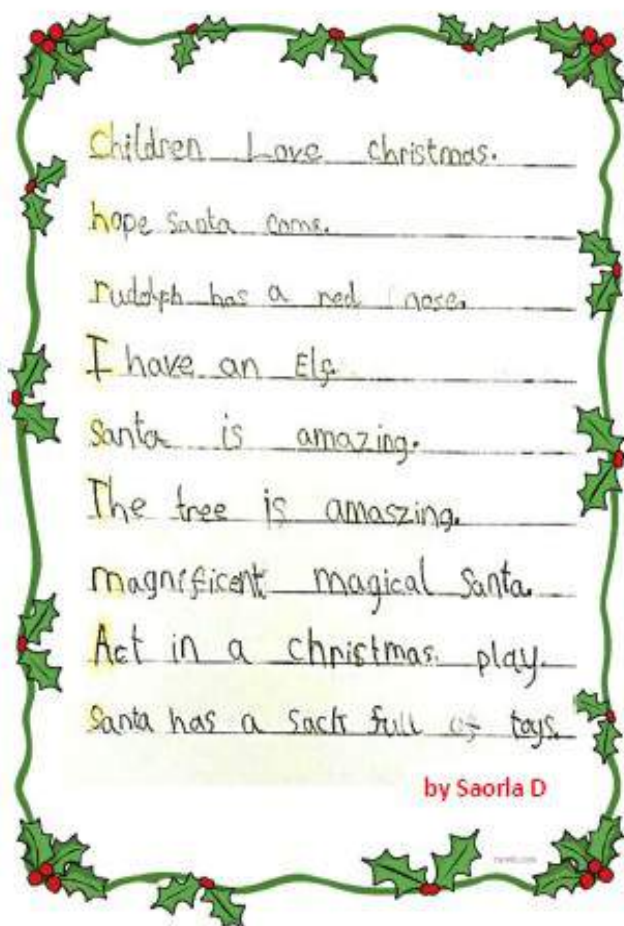 Children Love christmas.
hope santa come.
rudolph has a red nose.
I have an Elf.
Santa is amazing.
The tree is amaszing.
magnificent magical Santa.
Act in a christmas. play.
Santa has a sack full of toys.
by Saorla D